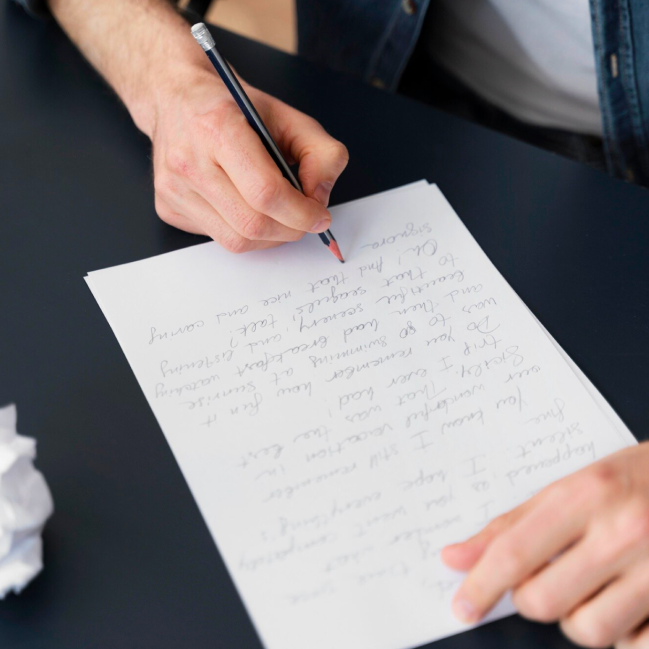 since
wonder what
happened as you went completely
silent. I hope everything's
fine.
You know I still remember
our wonderful vacation in
Sicily. That was the best
trip I ever had!
Do you remember how fun it
was to go swimming at sunrise
and then had breakfast watching
beautiful scenery, and listening
to that seagulls' talk?
Oh! And that nice and caring
signora